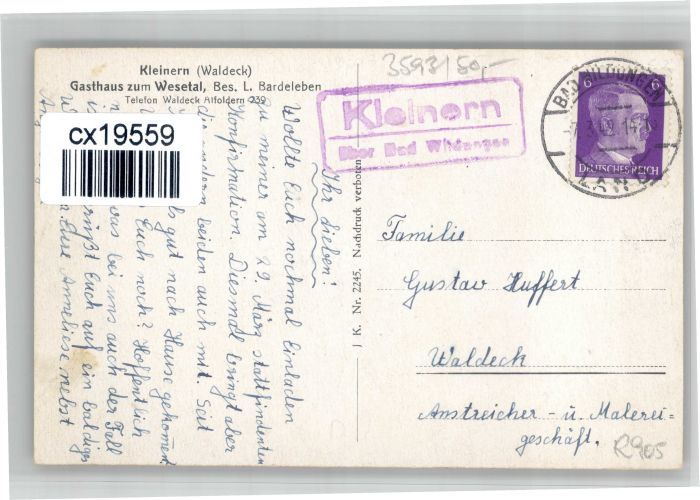 Kleinern (Waldeck)
Gasthaus zum Wesetal, Bes. L. Bardeleben
Telefon Waldeck Affoldern 239
cx19559
3593/50,-
Kleinern
über Bad Wildungen
BAD WILDUNGEN
LAND
6
DEUTSCHES REICH
J K. Nr. 2245. Nachdruck verboten
Ihr Lieben!
Wollte Euch nochmal Einladen
zu meiner am 29. März stattfindenten
Konfirmation. Diesmal bringt aber
die andern beiden auch mit. Seit
gut nach Hause gekommen
Euch noch? Hoffentlich
was bei uns auch der Fall
grüßt Euch auf ein baldiges
Eure Anneliese nebst
Familie
Gustav Huffert
Waldeck
Anstreicher - u. Malerei-
geschäft.
R905